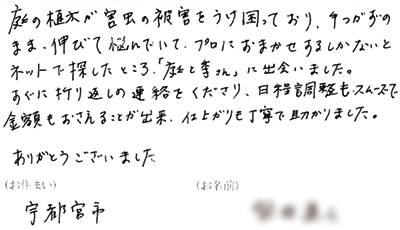 庭の植木が害虫の被害をうけ困っており、手つかずの
まま、伸びて悩んでいて、プロにおまかせするしかないと
ネットで探したところ、「庭と李さん」に出会いました。
すぐに折り返しの連絡をくださり、日程調整もスムーズで
金額もおさえることが出来、仕上がりも丁寧で助かりました。
ありがとうございました
(お住まい)
(お名前)
宇都宮市